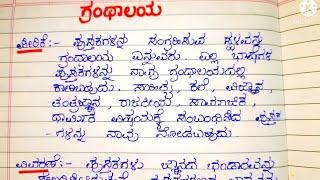 ಗ್ರಂಥಾಲಯ
ಪೀಠಿಕೆ:- ಪುಸ್ತಕಗಳನ್ನು ಸಂಗ್ರಹಿಸುವ ಸ್ಥಳವನ್ನು
ಗ್ರಂಥಾಲಯ ಎನ್ನುವರು. ಎಲ್ಲಾ ಭಾಷೆಗಳ
ಪುಸ್ತಕಗಳನ್ನು ನಾವು ಗ್ರಂಥಾಲಯದಲ್ಲಿ
ಕಾಣಬಹುದು. ಸಾಹಿತ್ಯ, ಕಲೆ, ವಿಜ್ಞಾನ,
ತಂತ್ರಜ್ಞಾನ, ರಾಜಕೀಯ, ಸಾಮಾಜಿಕ,
ಧಾರ್ಮಿಕ ವಿಷಯಕ್ಕೆ ಸಂಬಂಧಿಸಿದ ಪುಸ್ತಕ
-ಗಳನ್ನು ನಾವು ನೋಡಬಹುದು.
ವಿವರಣೆ:- ಪುಸ್ತಕಗಳು ಜ್ಞಾನದ ಭಂಡಾರವನ್ನು